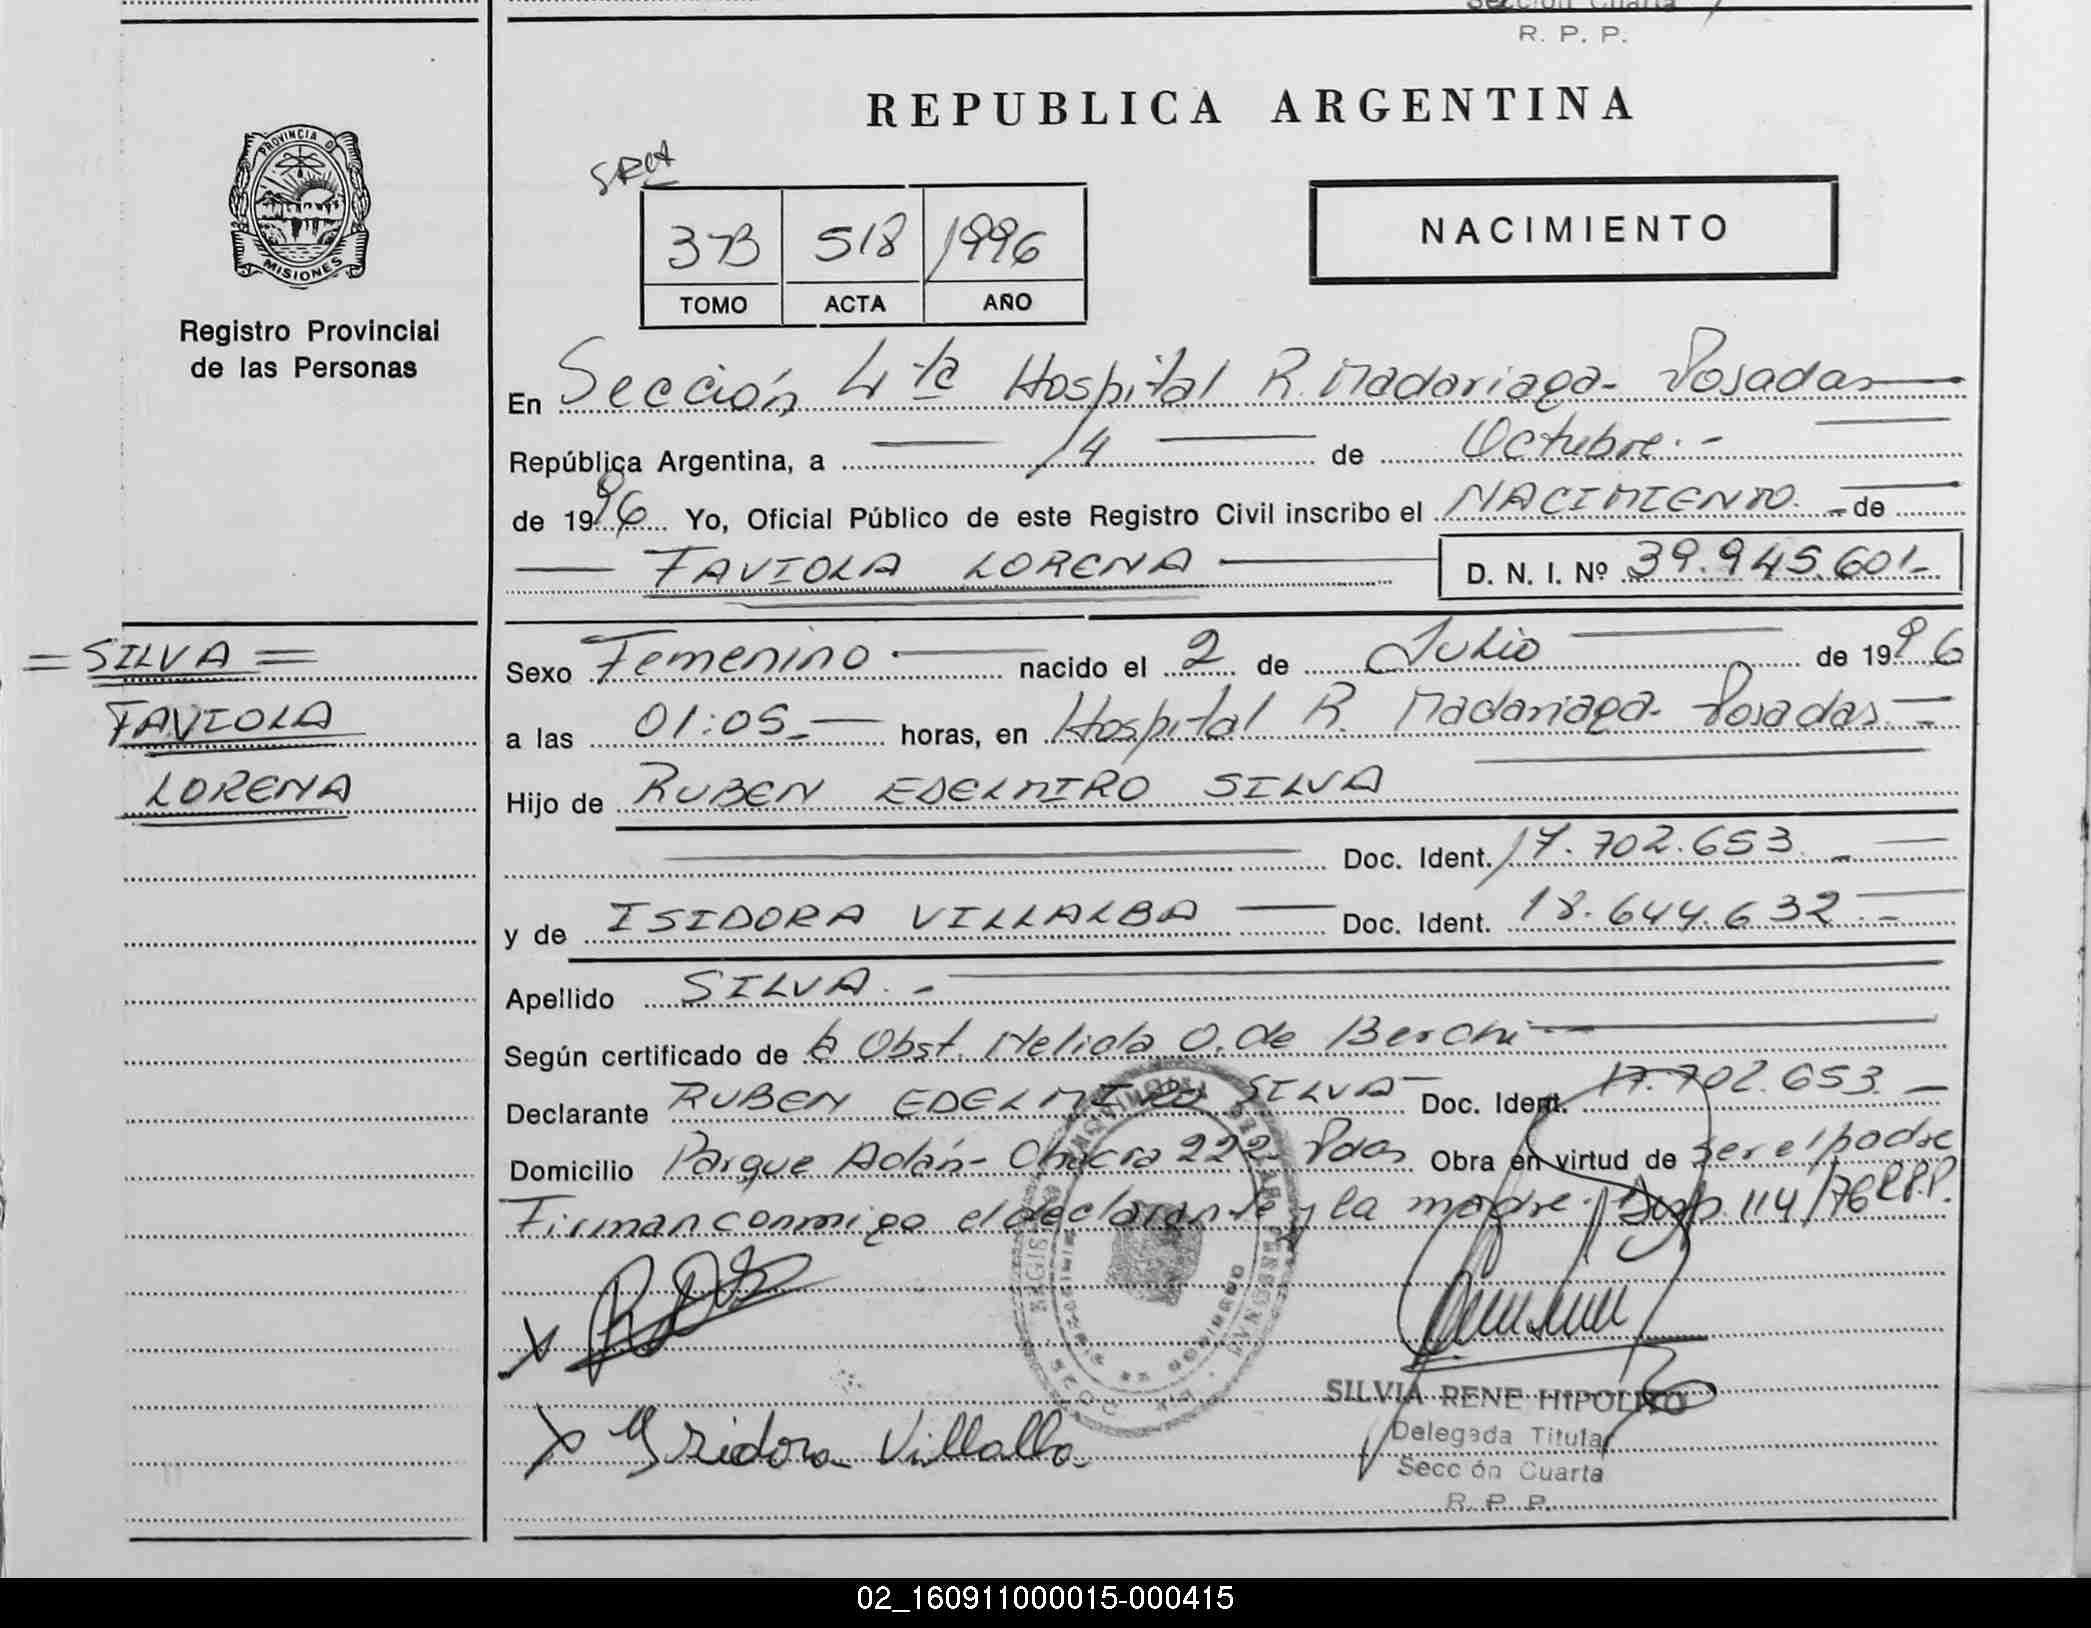 Sección Cuarta
R. P. P.
REPUBLICA ARGENTINA
PROVINCIA D
MISIONES
Registro Provincial
de las Personas
3-B 518 1996
TOMO ACTA AÑO
NACIMIENTO
En Sección 4ta Hospital R. Madariaga- Posadas
República Argentina, a 14 de Octubre.-
de 1996 Yo, Oficial Público de este Registro Civil inscribo el NACIMIENTO de
FAVIOLA LORENA D. N. I. Nº 39.945.601-
= SILVA =
FAVIOLA
LORENA
Sexo Femenino.- nacido el 2 de Julio de 1996
a las 01:05 horas, en Hospital R. Madariaga- Posadas.-
Hijo de RUBEN EDELMIRO SILVA
Doc. Ident. 17.702.653.-
y de ISIDORA VILLALBA Doc. Ident. 18.644.632.-
Apellido SILVA.-
Según certificado de la Obst. Nelida O. de Berchi
Declarante RUBEN EDELMIRO SILVA Doc. Ident. 17.702.653.-
Domicilio Parque Adán- Chacra 222- Pdas Obra en virtud de ser el padre
Firman conmigo el declarante y la madre. Disp. 114/76 R.P.P.
X
X Ysidora Villalba
SILVIA RENE HIPOLITO
Delegada Titular
Sección Cuarta
R. P. P.
02_160911000015-000415